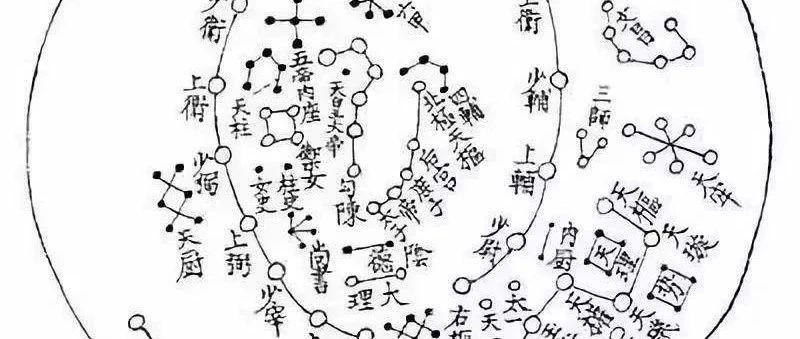 少衛
上衛
少弼
上弼
少宰
五帝內座
天柱
御女
女史
柱史
天厨
尚書
天皇大帝
勾陳
六甲
四輔
北極天樞
后宮
庶子
帝
太子
陰德
大理
上衛
少輔
上輔
少尉
右樞
太一
天
內厨
文昌
三師
天牢
天樞
天璇
天理
势
天璣